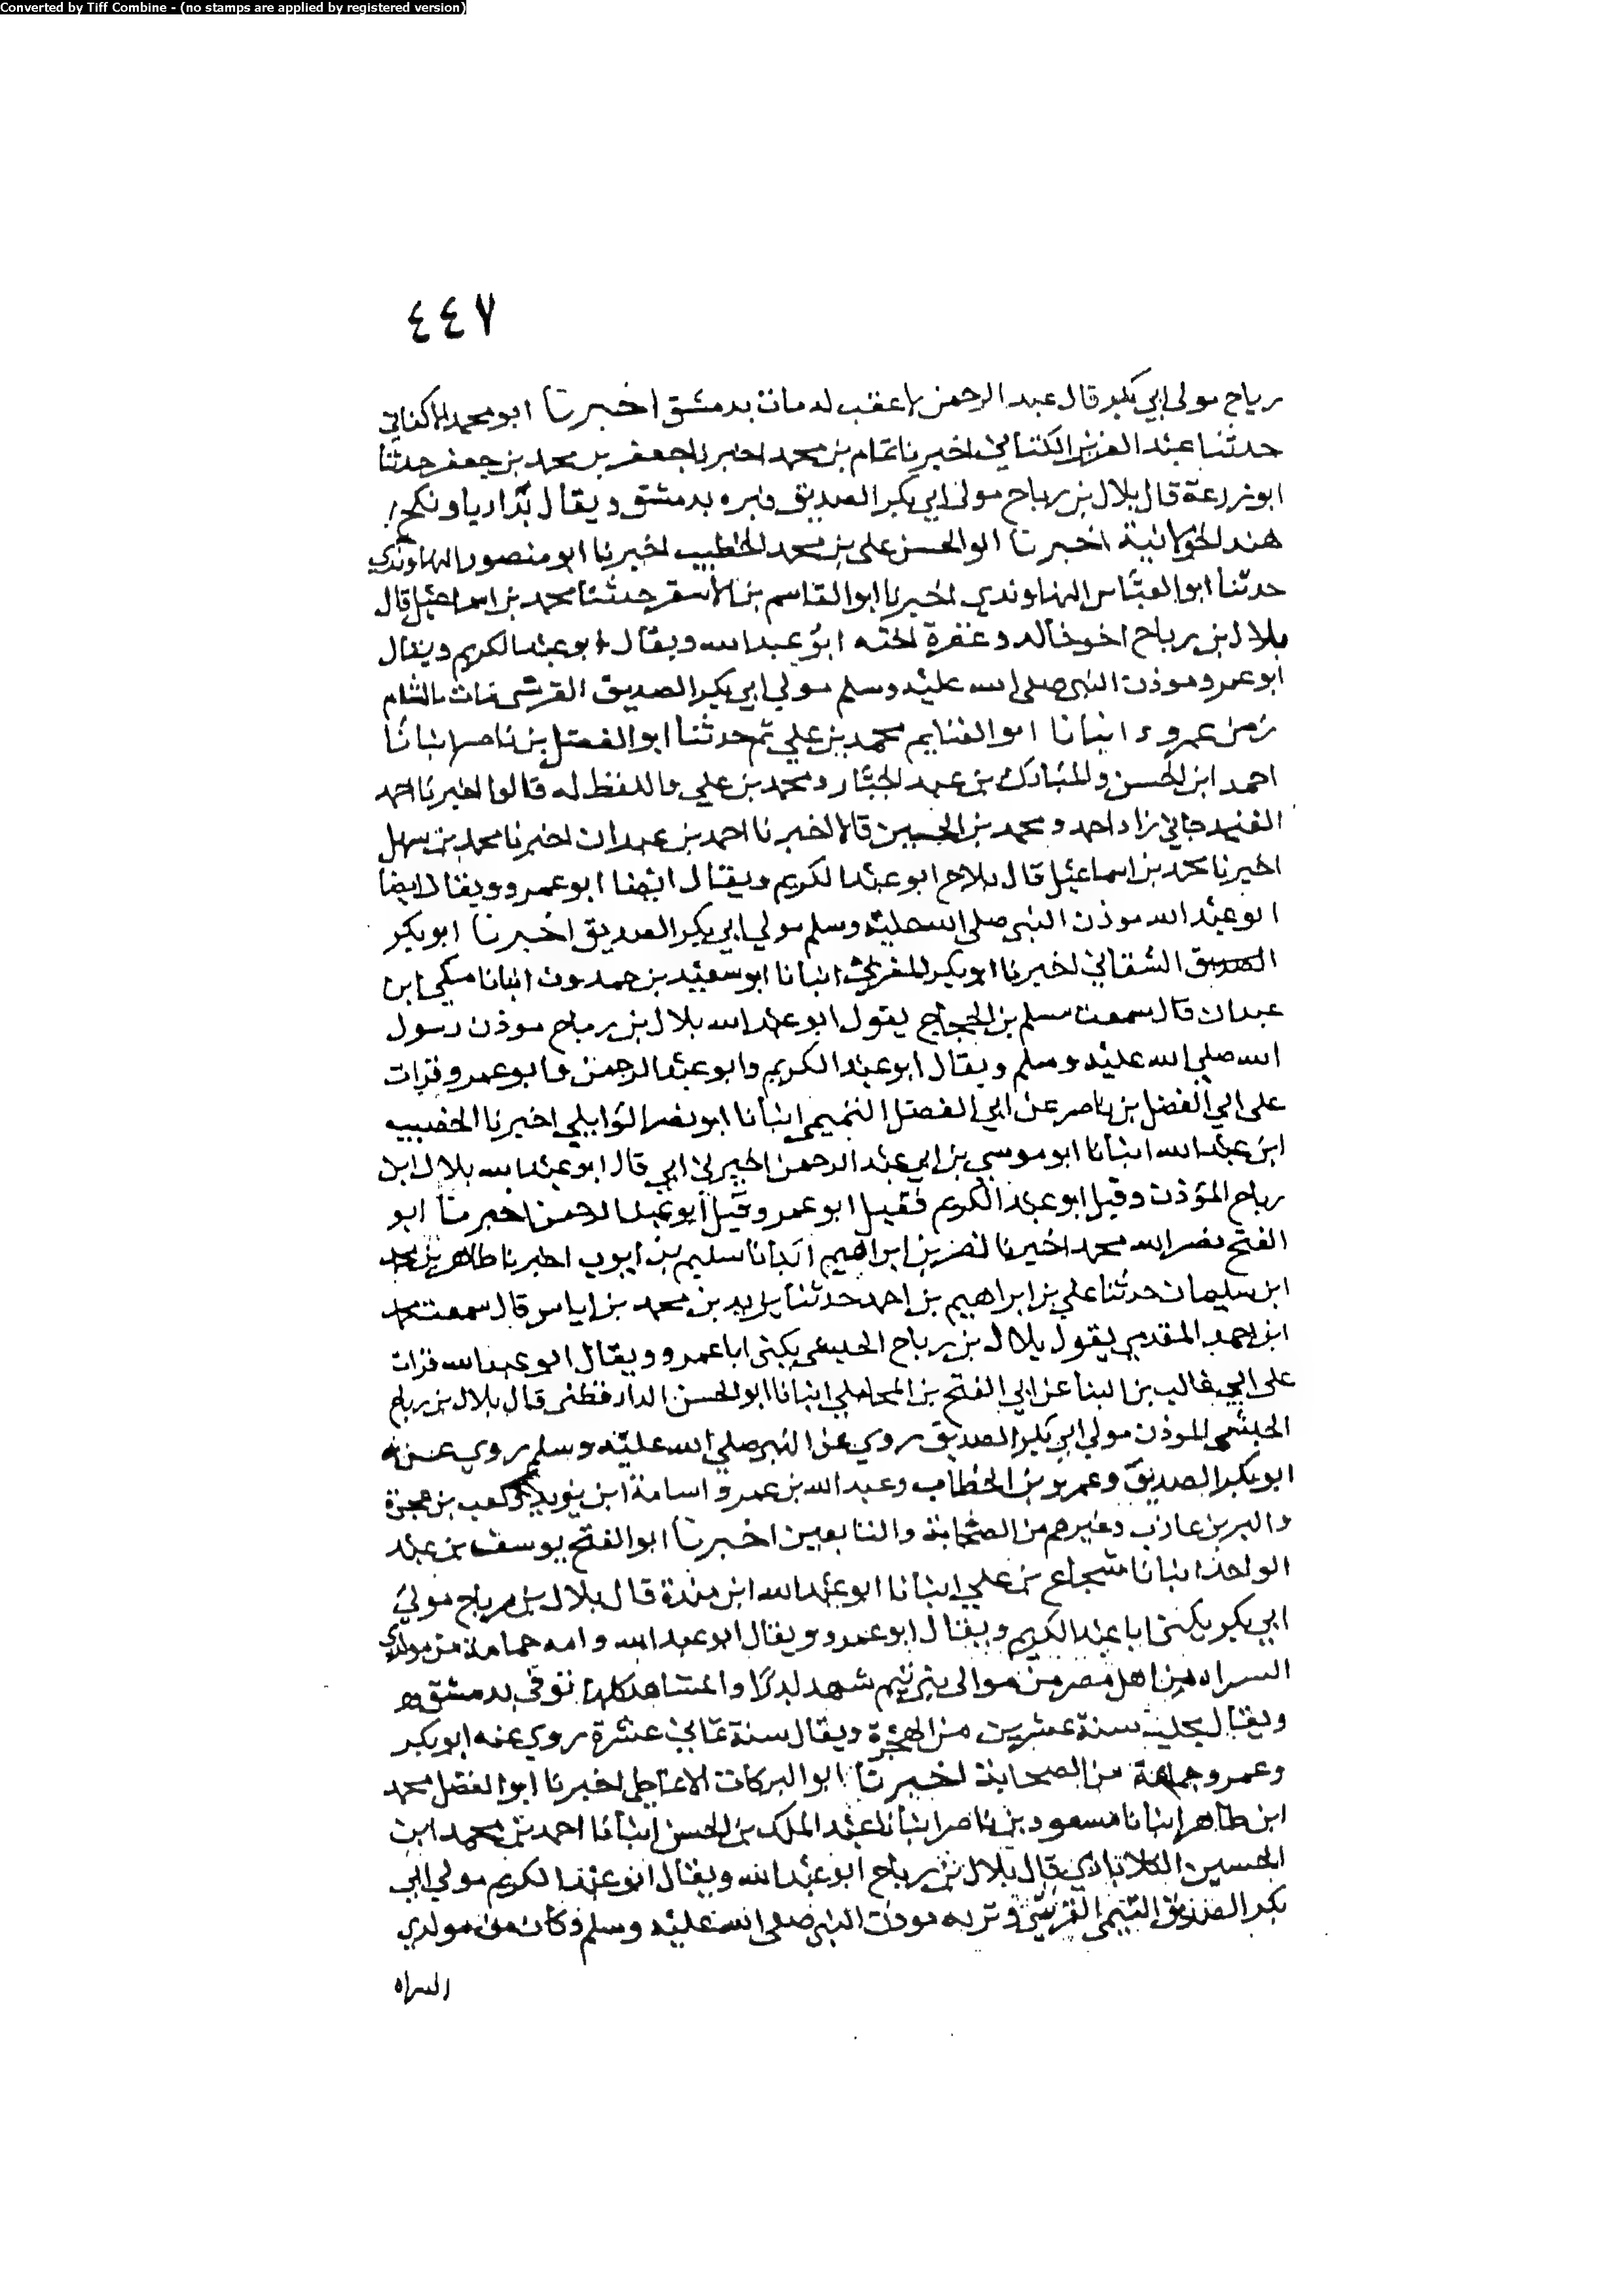 Converted by Tiff Combine - (no stamps are applied by registered version)
٤٤٧
رباح مولى ابي بكر قال عبد الرحمن لا عقب له مات بدمشق اخبرنا ابو محمد الاكفاني
حدثنا عبد العزيز الكتاني اخبرنا تمام بن محمد اخبرنا جعفر بن محمد بن جعفر حدثنا
ابو زرعة قال بلال بن رباح مولى ابي بكر الصديق قبره بدمشق ويقال بداريا ونكح
هند الخولانية اخبرنا ابو الحسن علي بن محمد الخطيب اخبرنا ابو منصور النهاوندي
حدثنا ابو العباس النهاوندي اخبرنا ابو القاسم بن الاشقر حدثنا محمد بن اسماعيل قال
بلال بن رباح اخو خالد وغفرة اخته ابو عبد الله ويقال ابو عبد الكريم ويقال
ابو عمرو موذن النبي صلى الله عليه وسلم مولي ابي بكر الصديق القرشي مات بالشام
زمن عمر انبانا ابو الغنايم محمد بن علي ثم حدثنا ابو الفضل بن ناصر انبانا
احمد ابن الحسن والمبارك بن عبد الجبار ومحمد بن علي واللفظ له قالوا اخبرنا احمد
الغندجاني زاد احمد ومحمد بن الحسين قالا اخبرنا احمد بن عبدان اخبرنا محمد بن سهل
اخبرنا محمد بن اسماعيل قال بلال ابو عبد الكريم ويقال ايضا ابو عمرو ويقال ايضا
ابو عبد الله موذن النبي صلى الله عليه وسلم مولي ابي بكر الصديق اخبرنا ابو بكر
الشقاني اخبرنا ابو بكر المغربي انبانا ابو سعيد بن حمدون انبانا مكي ابن
عبدان قال سمعت مسلم بن الحجاج يقول ابو عبد الله بلال بن رباح موذن رسول
الله صلي الله عليه وسلم ويقال ابو عبد الكريم وابو عبد الرحمن وابو عمرو قرات
على ابي الفضل بن ناصر عن ابي الفضل التميمي انبانا ابو نصر الوايلي اخبرنا الخصيب
ابن عبد الله انبانا ابو موسي بن ابي عبد الرحمن اخبرني ابي قال ابو عبد الله بلال ابن
رباح المؤذن وقيل ابو عبد الكريم فقيل ابو عمرو وقيل ابو عبد الرحمن اخبرنا ابو
الفتح نصر الله محمد اخبرنا نصر بن ابراهيم انبانا سليم بن ايوب اخبرنا طاهر بن محمد
ابن سليمان حدثنا علي بن ابراهيم بن احمد حدثنا يزيد بن محمد بن اياس قال سمعت محمد
ابن احمد المقدمي يقول بلال بن رباح الحبشي يكنى ابا عمرو ويقال ابو عبد الله قرات
على ابي غالب بن البنا عن ابي الفتح بن المحاملي انبانا ابو الحسن الدارقطني قال بلال بن رباح
الحبشي الموذن مولي ابي بكر الصديق روي عن النبي صلي الله عليه وسلم روي عنه
ابو بكر الصديق وعمر بن الخطاب وعبد الله بن عمر واسامة ابن زيد وكعب بن عجرة
والبر بن عازب وغيرهم من الصحابة والتابعين اخبرنا ابو الفتح يوسف بن عبد
الواحد انبانا شجاع بن علي انبانا ابو عبد الله ابن مندة قال بلال بن رباح مولي
ابي بكر يكنى ابا عبد الكريم ويقال ابو عمرو ويقال ابو عبد الله وامه حمامة من مولدي
السراه من اهل مصر من موالى بني تيم شهد بدرا والمشاهد كلها توفي بدمشق
ويقال بحلب سنة عشرين من الهجرة ويقال سنة ثماني عشرة روي عنه ابو بكر
وعمر وجماعة من الصحابة اخبرنا ابو البركات الانماطي اخبرنا ابو الفضل محمد
ابن طاهر انبانا مسعود بن ناصر انبانا عبد الملك بن الحسن انبانا احمد بن محمد ابن
الحسين الكلاباذي قال بلال بن رباح ابو عبد الله ويقال ابو عبد الكريم مولي ابي
بكر الصديق التيمي القرشي موذن النبي صلى الله عليه وسلم وكان من مولدي
السراه